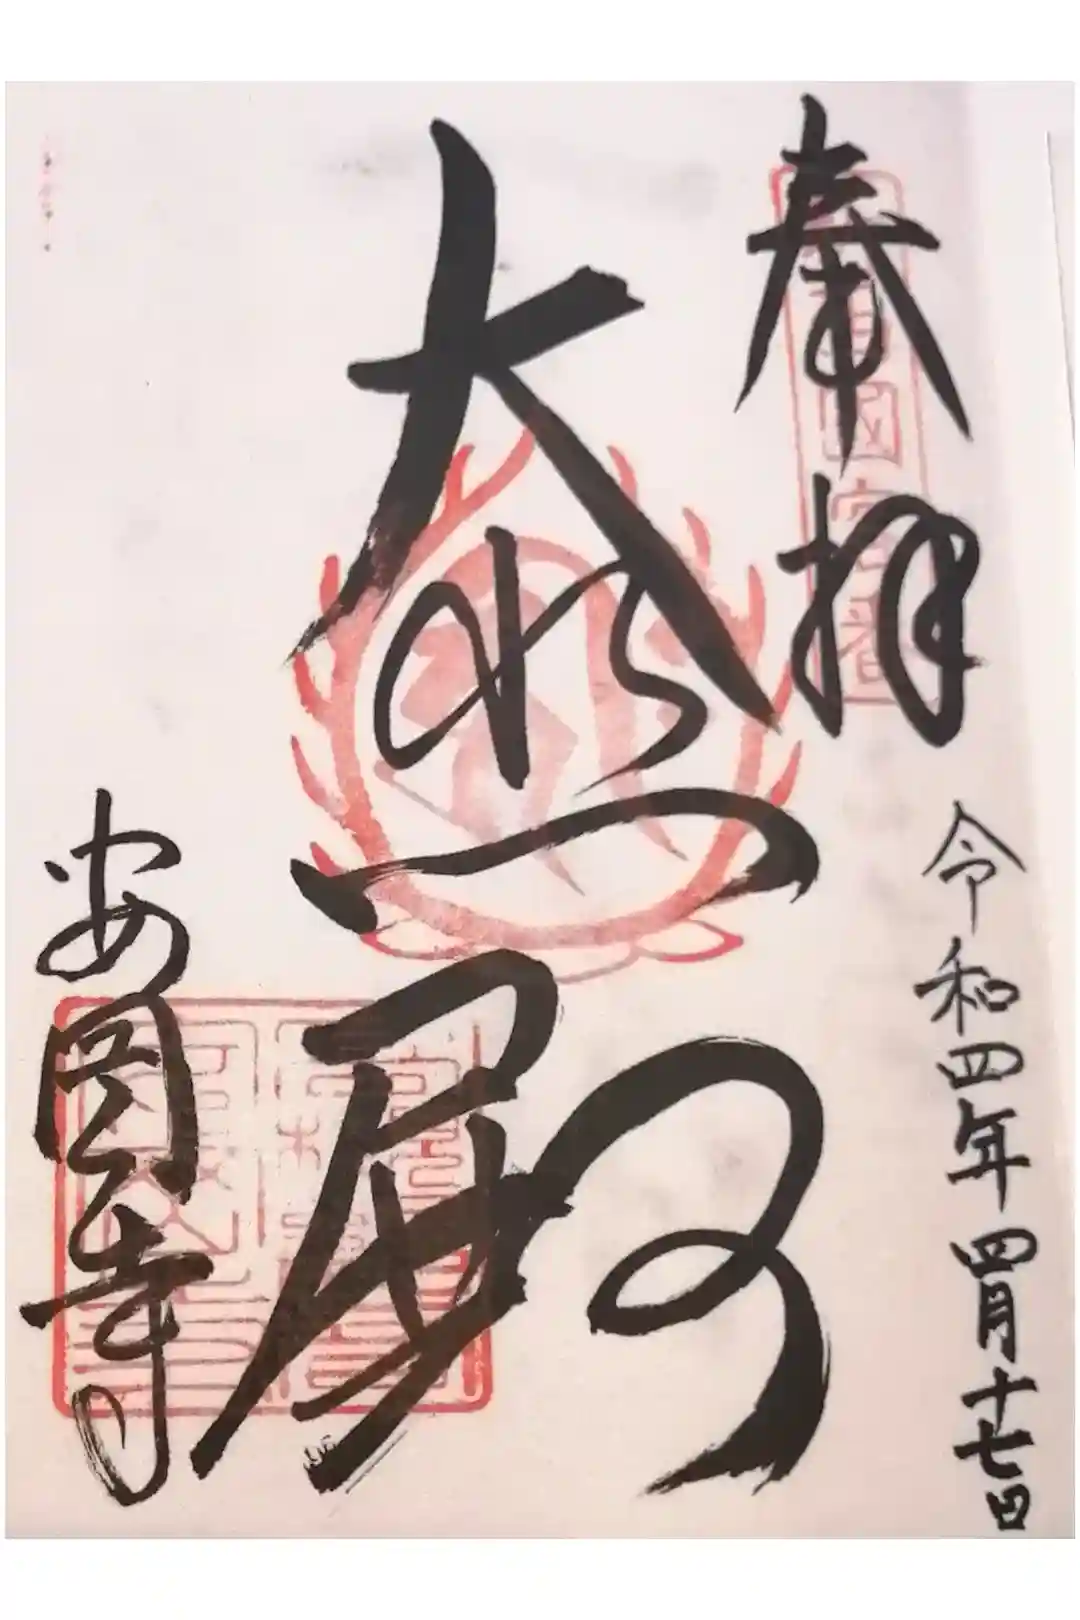 奉拝
令和四年四月十七日
大悲殿
安国寺